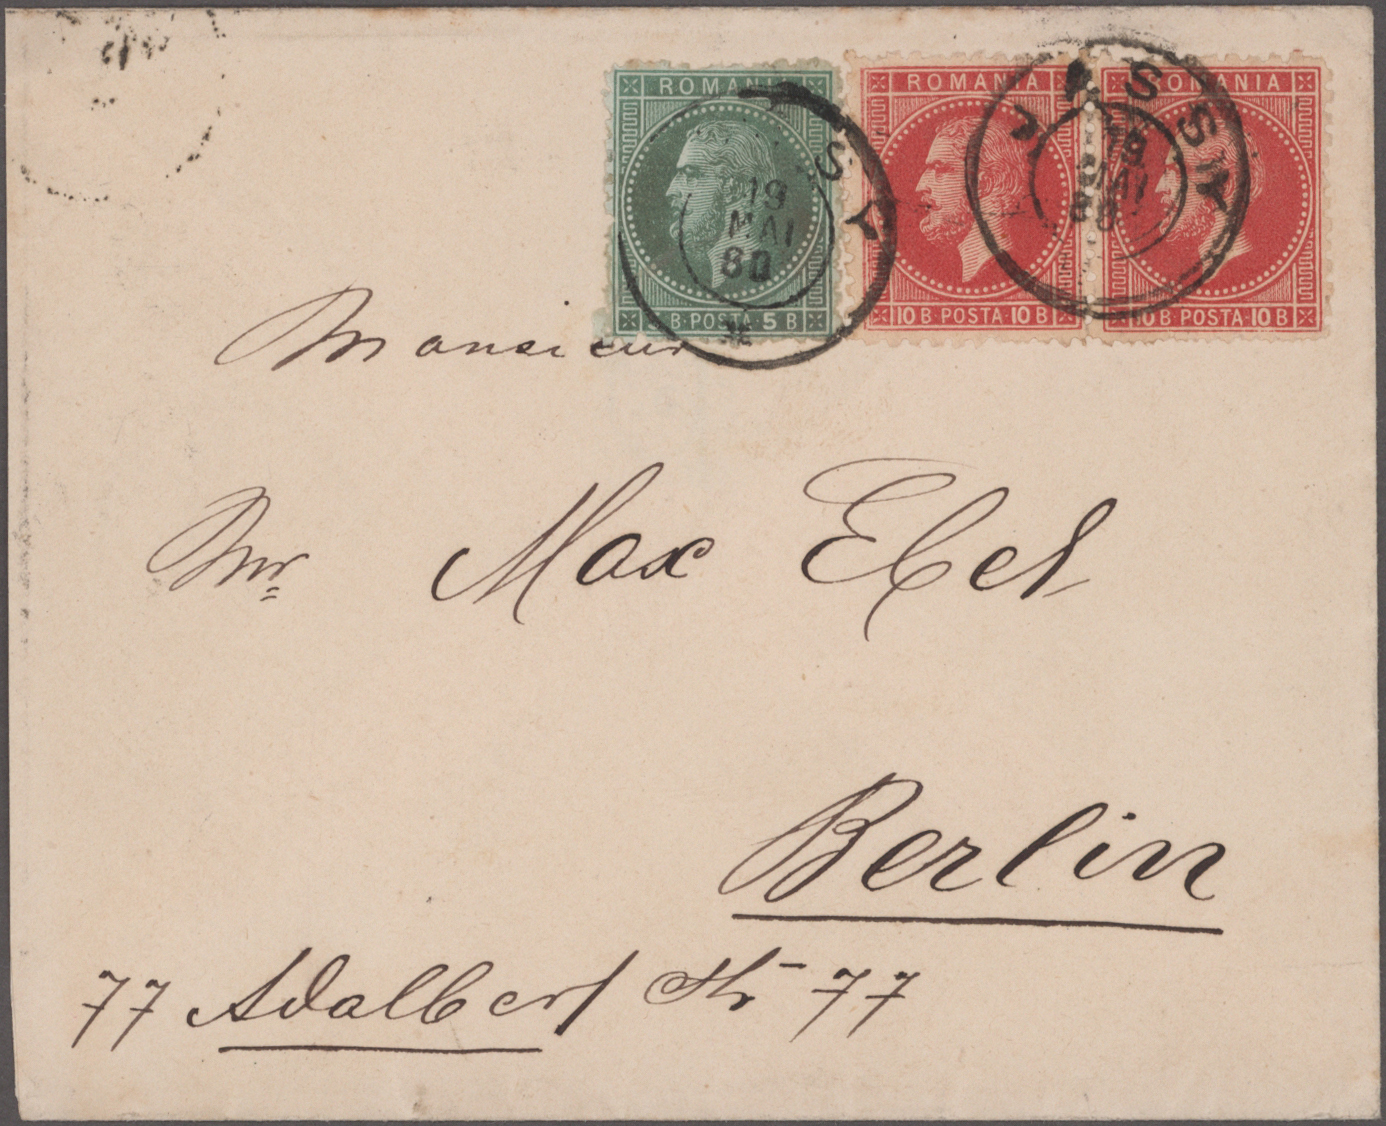 ROMANIA ROMANIA ROMANIA
5 B · POSTA · 5 B 10 B · POSTA · 10 B 10 B · POSTA · 10 B
SY
19
MAI
80
SSY
19
MAI
80
Monsieur
Mr Max Ebel
Berlin
77 Adalbert Str 77